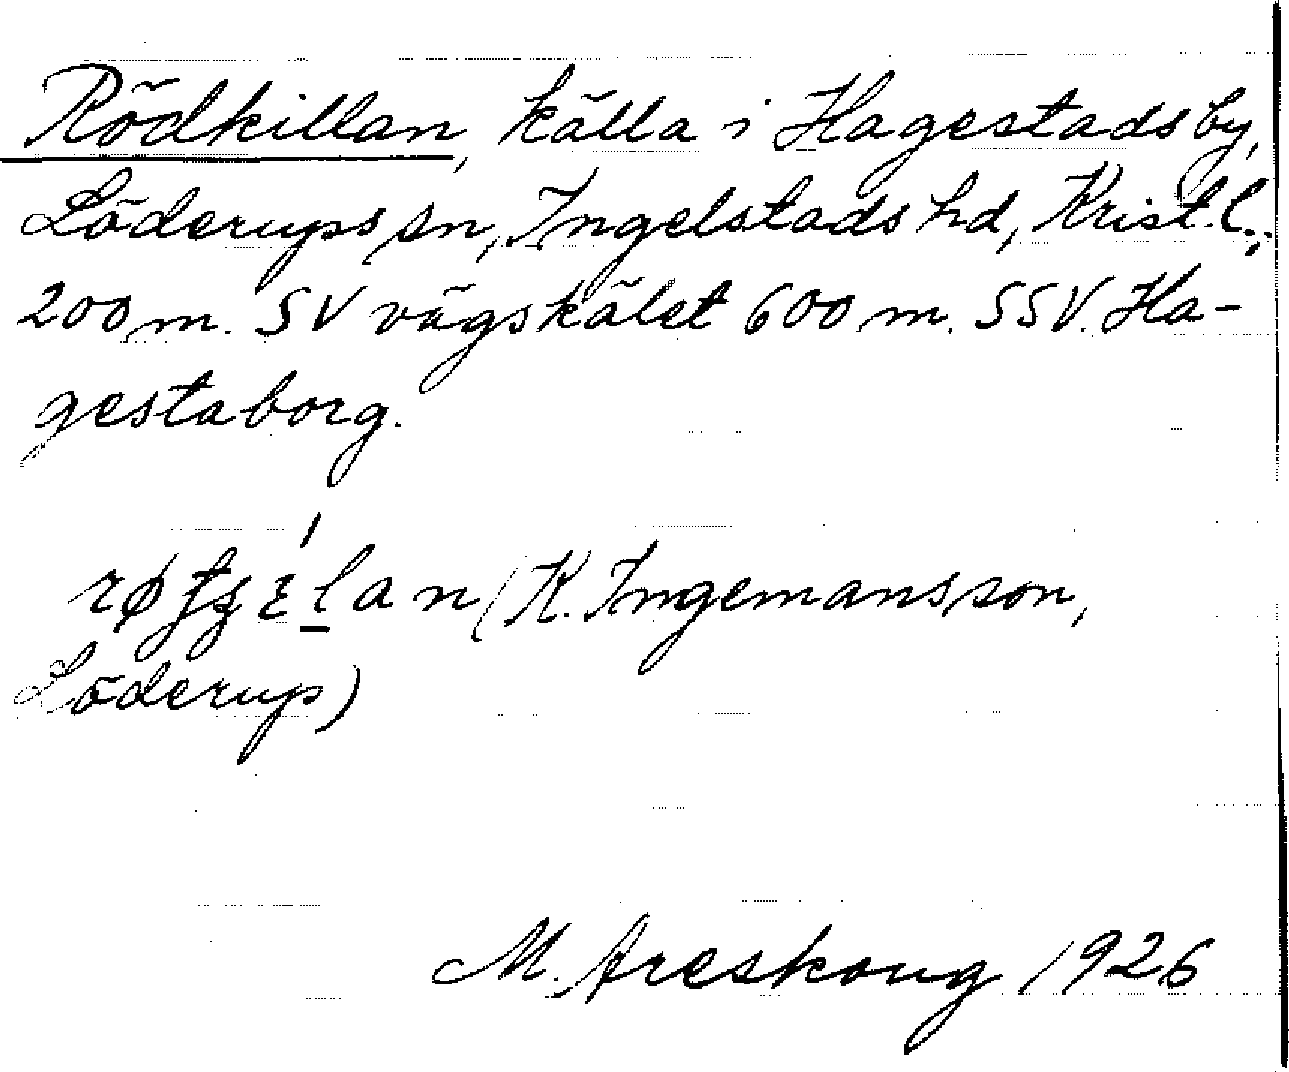 Rödkillan, källa i Hagestads by,
Löderups sn, Ingelstads hd, Krist. l.,
200 m. SV vägskälet 600 m. SSV. Ha-
gestaborg.
(K. Ingemansson,
Löderup)
M. Areskoug 1926